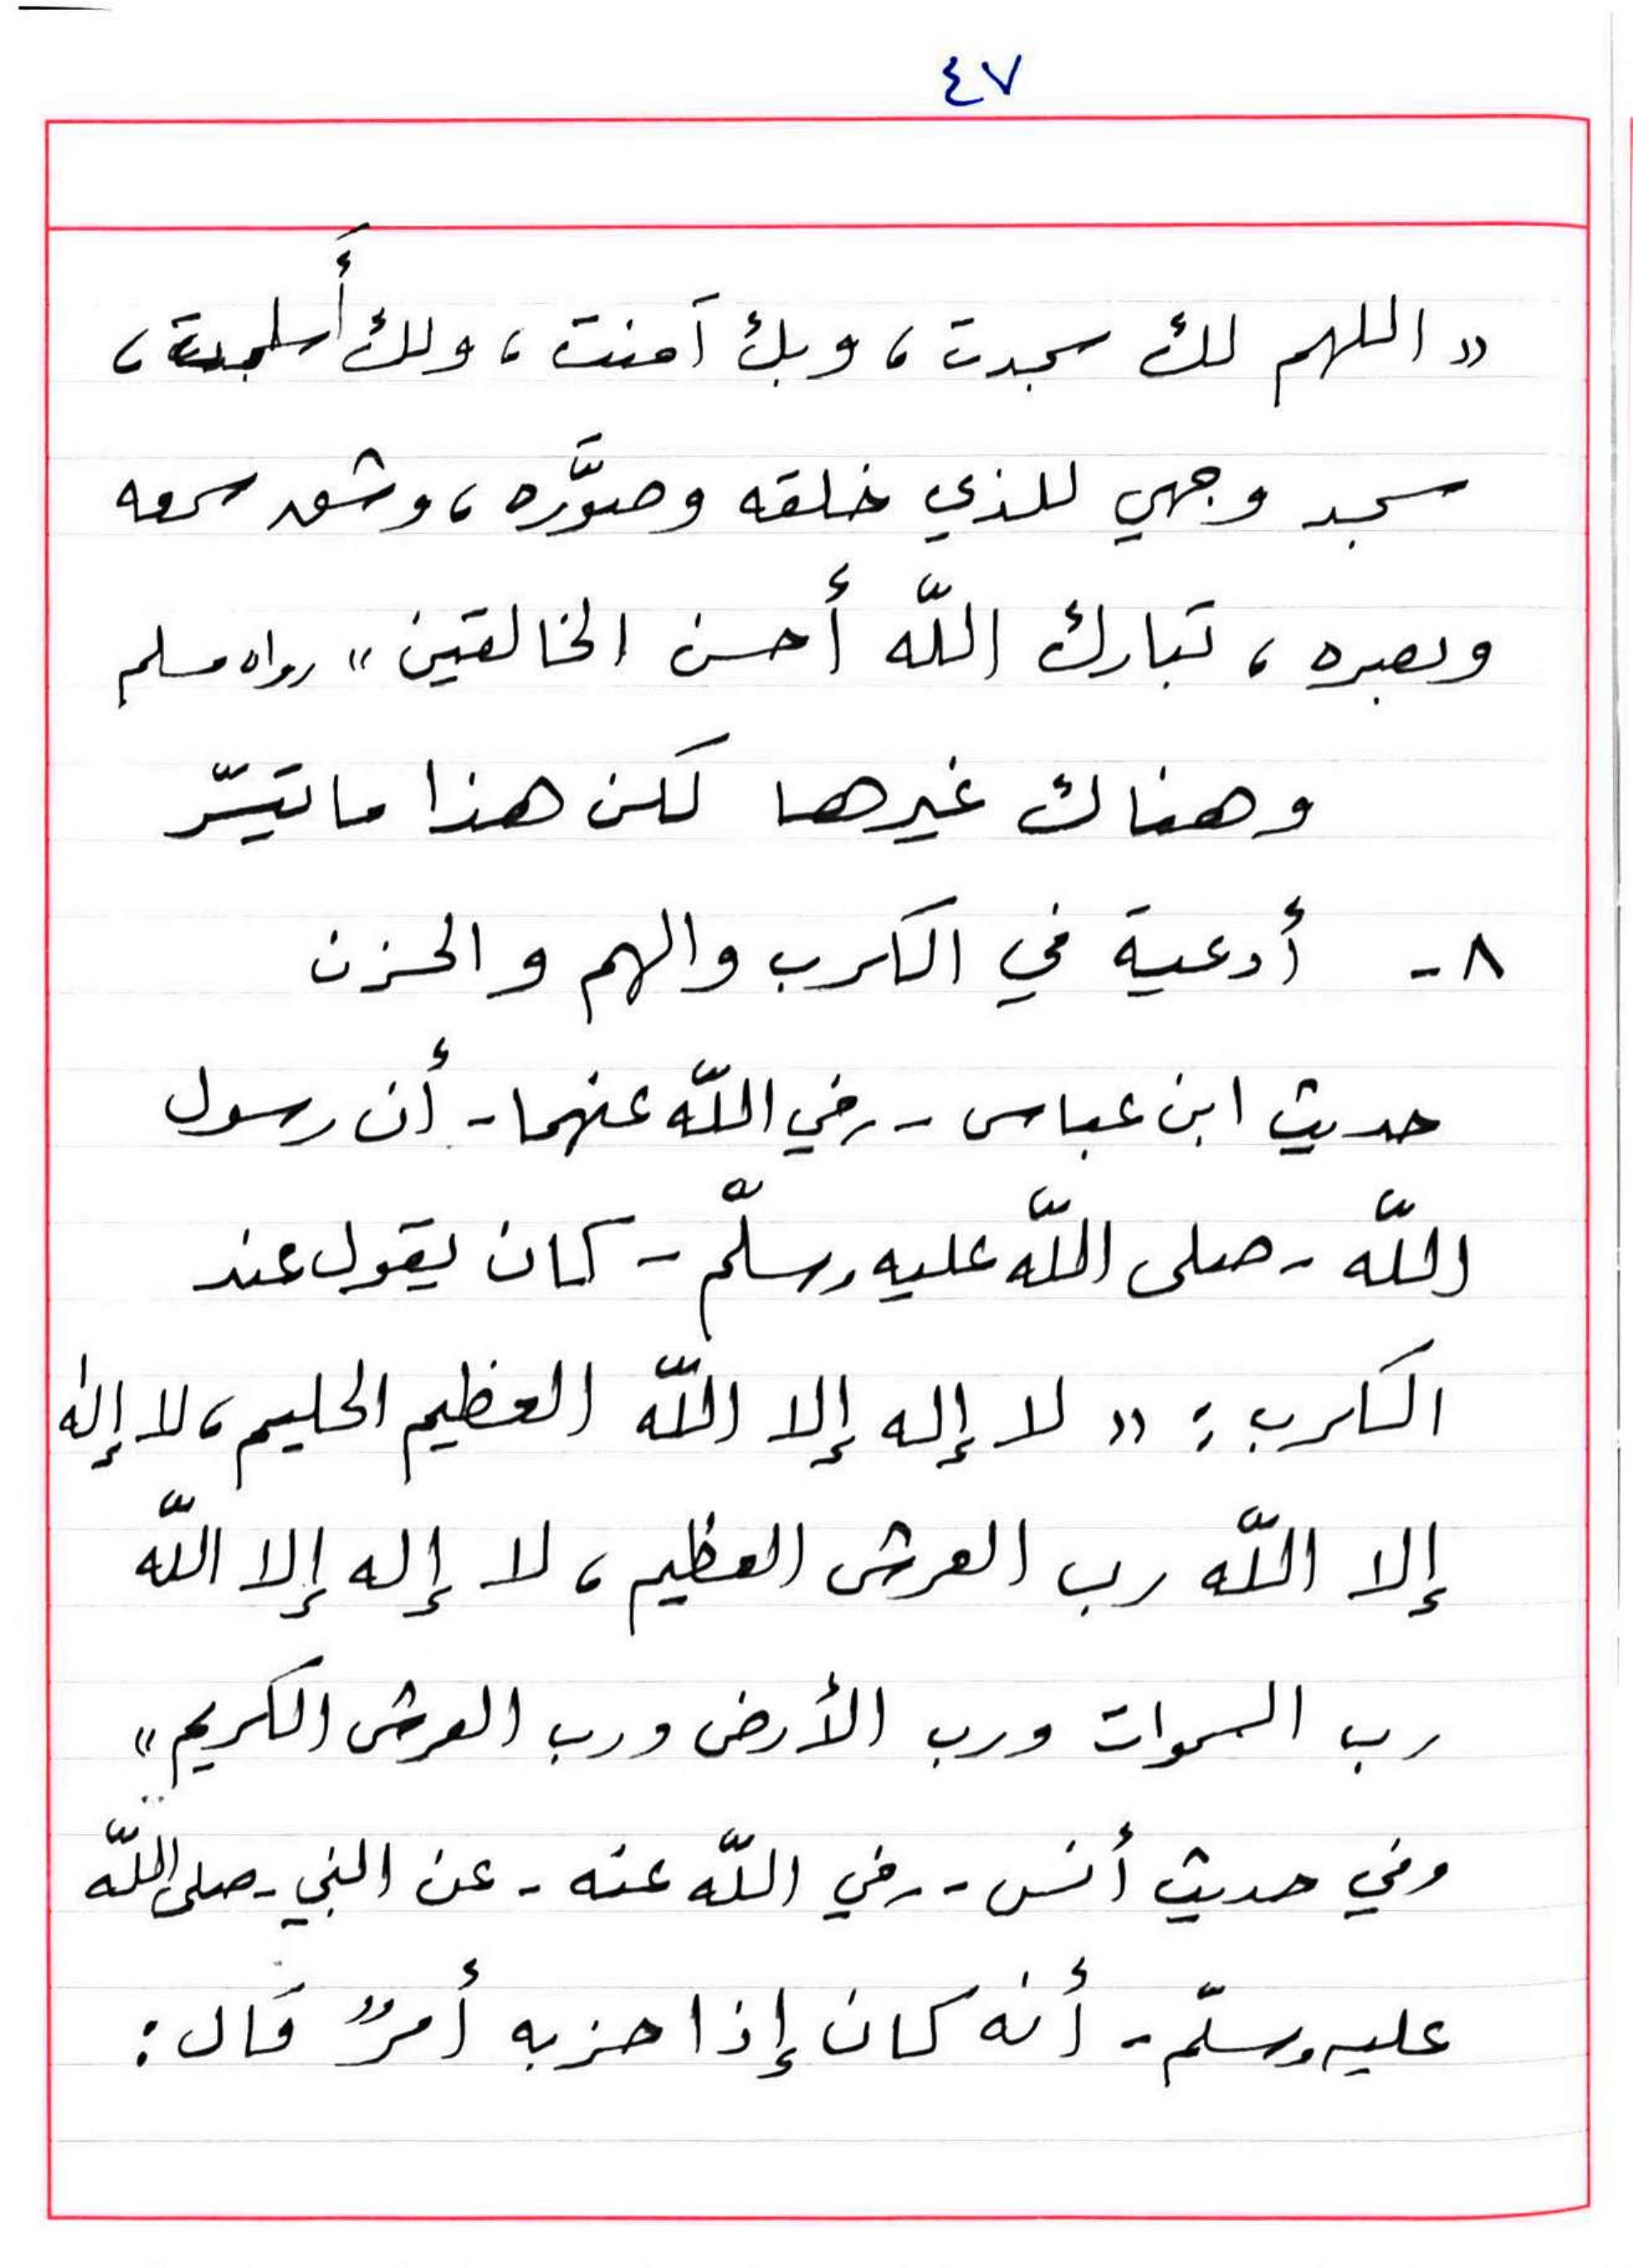 ٤٧
«اللهم لك سجدت، وبك آمنت، ولك أَسلمت،
سجد وجهي للذي خلقه وصوَّره، وشق سمعه
وبصره، تبارك اللّه أحسن الخالقين» رواه مسلم
وهناك غيرها لكن هذا ما تيسّر
٨- أدعية في الكرب والهم والحزن
حديث ابن عباس - رضي اللّه عنهما - أن رسول
اللّه - صلى اللّه عليه وسلّم - كان يقول عند
الكرب: «لا إله إلا اللّه العظيم الحليم، لا إله
إلا اللّه رب العرش العظيم، لا إله إلا اللّه
رب السموات ورب الأرض ورب العرش الكريم»
وفي حديث أنس - رضي اللّه عنه - عن النبي - صلى اللّه
عليه وسلّم - أنه كان إذا حزبه أمرٌ قال: